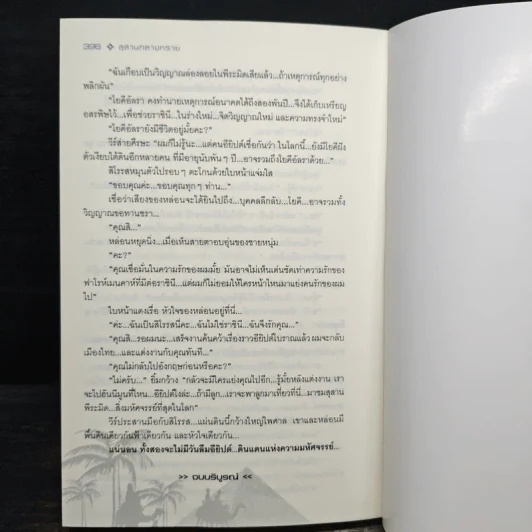 396 ❖ สุสานกลางทราย
“ฉันเกือบเป็นวิญญาณล่องลอยในพีระมิดเสียแล้ว...ถ้าเหตุการณ์ทุกอย่าง
พลิกผัน”
“โยคีอัลรา คงทำนายเหตุการณ์อนาคตได้ถึงสองพันปี...จึงได้เก็บเหรียญ
อสรพิษไว้...เพื่อช่วยราชินี...ในร่างใหม่...จิตวิญญาณใหม่ และความทรงจำใหม่”
“โยคีอัลรายังมีชีวิตอยู่มั้ยคะ?”
วีร์ส่ายศีรษะ “ผมก็ไม่รู้นะ...แต่คนอียิปต์เชื่อกันว่า ในโลกนี้...ยังมีโยคีฝัง
ตัวเงียบใต้ดินอีกหลายคน ที่มีอายุนับพัน ๆ ปี...อาจรวมถึงโยคีอัลราด้วย...”
สิโรรสหมุนตัวไปรอบๆ ตะโกนด้วยใบหน้าแจ่มใส
“ขอบคุณค่ะ...ขอบคุณทุก ๆ ท่าน...”
เชื่อว่าเสียงของหล่อนจะได้ยินไปถึง...บุคคลลึกลับ...โยคี...อาจรวมทั้ง
วิญญาณขอทานชรา...
“คุณสิ...”
หล่อนหยุดนิ่ง...เมื่อเห็นสายตาอบอุ่นของชายหนุ่ม
“คะ?”
“คุณเชื่อมั่นในความรักของผมมั้ย มันอาจไม่เห็นเด่นชัดเท่าความรักของ
ฟาโรห์เมนคาที่มีต่อราชินี...แต่ผมก็ไม่ยอมให้ใครหน้าไหนมาแย่งคนรักของผม
ไป”
ใบหน้าแดงเรื่อ หัวใจของหล่อนอยู่ที่นี่...
“ค่ะ...ฉันเป็นสิโรรสนี่คะ...ฉันไม่ใช่ราชินี...ฉันจึงรักคุณ...”
“คุณสิ...รอผมนะ...เสร็จงานค้นคว้าเรื่องราวอียิปต์โบราณแล้ว ผมจะกลับ
เมืองไทย...และแต่งงานกับคุณทันที...”
“คุณไม่กลับไปอังกฤษก่อนหรือคะ?”
“ไม่ครับ...” ยิ้มกว้าง “กลัวจะมีใครแย่งคุณไปอีก...รู้มั้ยหลังแต่งงาน เรา
จะไปฮันนีมูนที่ไหน...อียิปต์ไงล่ะ...ถ้ามีลูก...เราจะพาลูกมาเที่ยวที่นี่...มาชมสุสาน
พีระมิด...สิ่งมหัศจรรย์ที่สุดในโลก”
วีร์ประสานมือกับสิโรรส...แผ่นดินนี้กว้างใหญ่ไพศาล เขาและหล่อนมี
พื้นดินเดียวกันฟ้าเดียวกัน และหัวใจเดียวกัน...
แน่นอน ทั้งสองจะไม่มีวันลืมอียิปต์...ดินแดนแห่งความมหัศจรรย์...
>> จบบริบูรณ์ <<